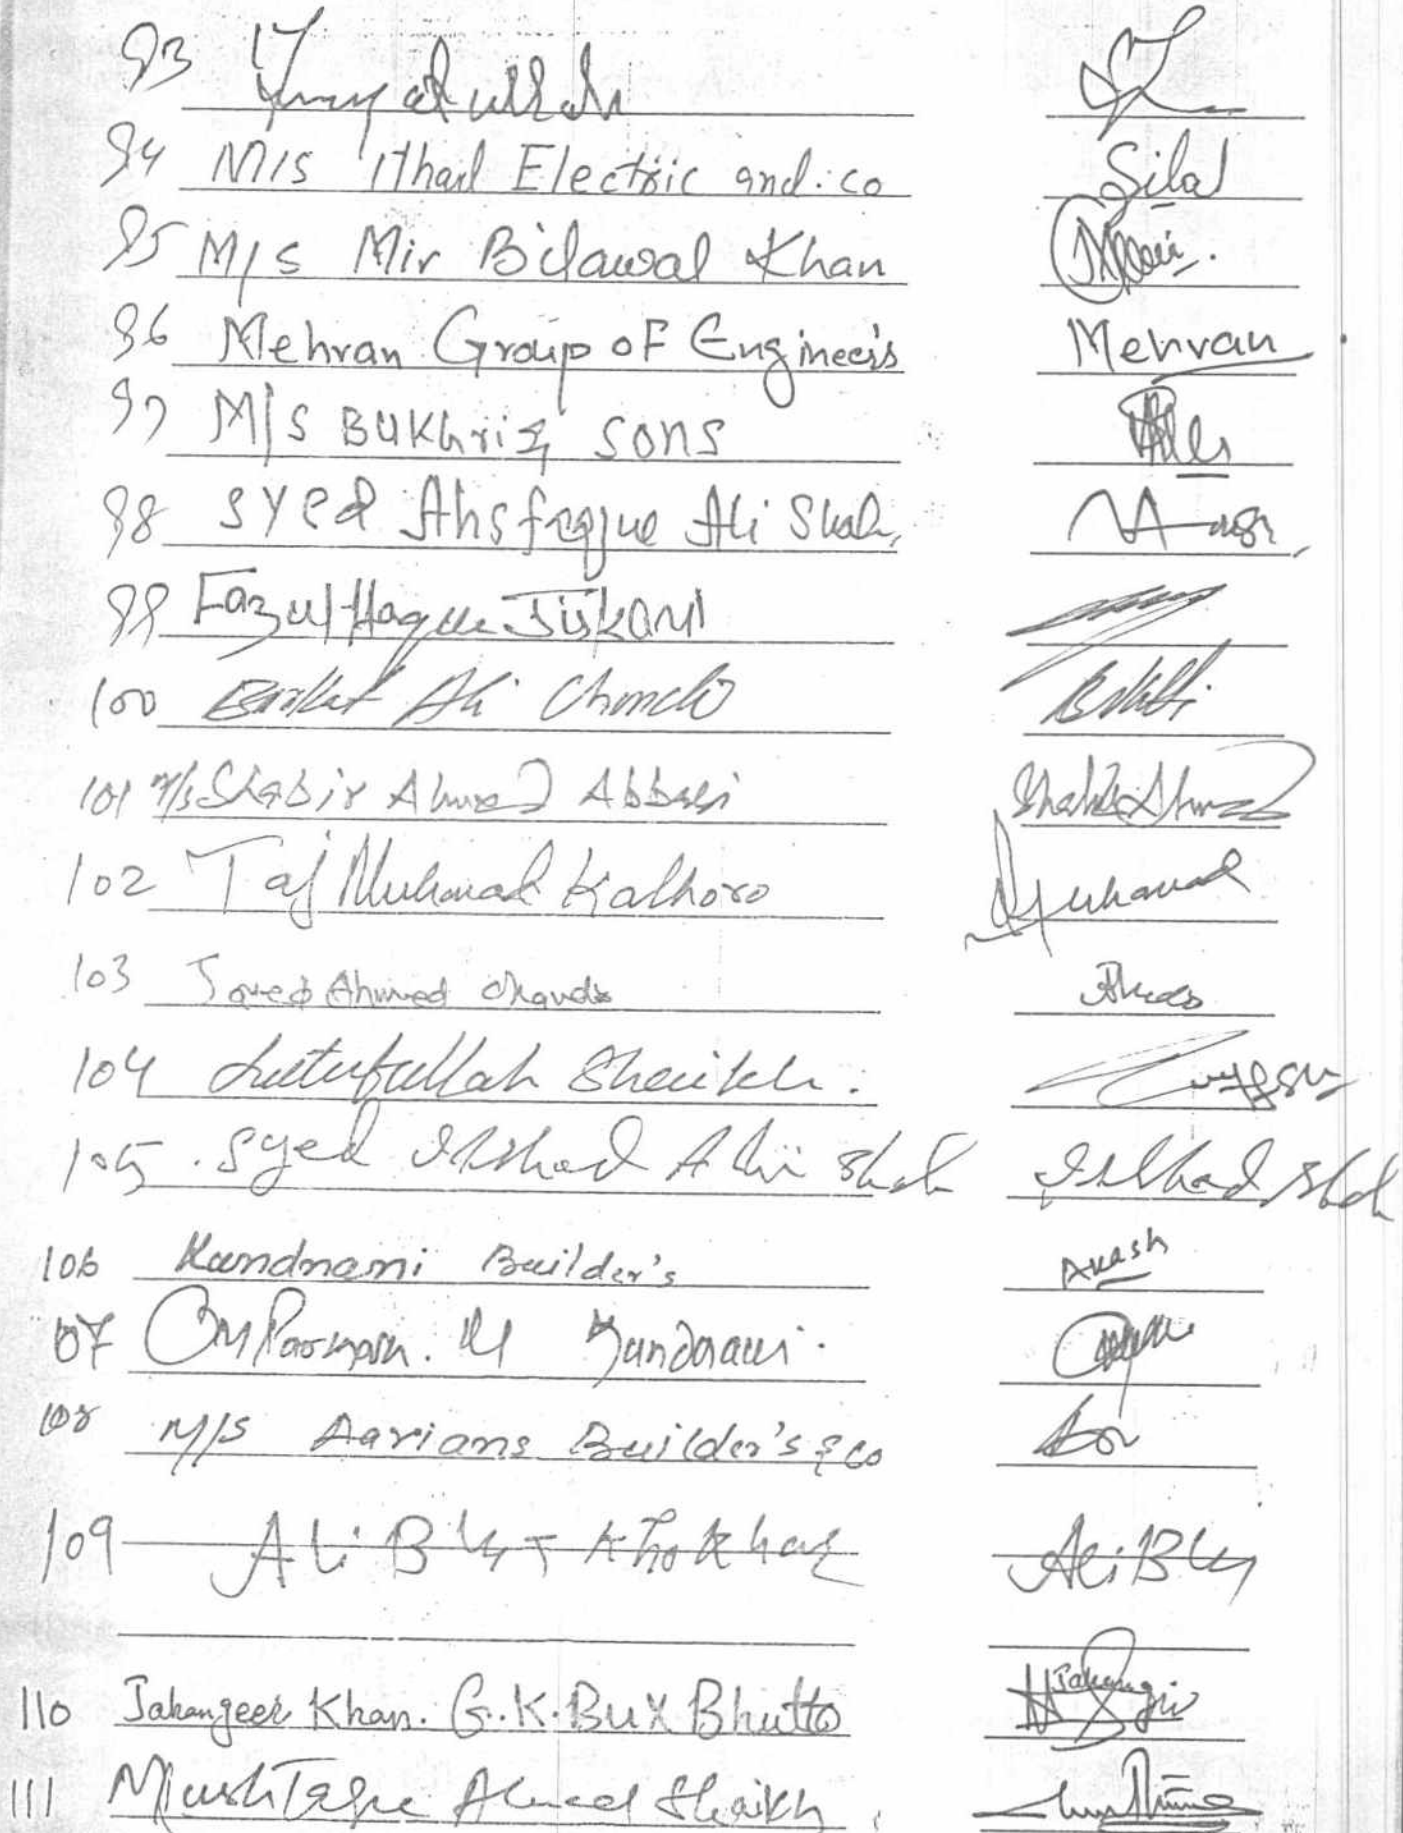 93 Inayatullah
94 M/S Ithad Electric and. co Silal
95 M/S Mir Bilawal Khan
96 Mehran Group of Engineers Mehran
97 M/S BUKhri & SONS
98 Syed Ahsfaque Ali Shah
99 Fazul Haque Jiskani
100 Barkat Ali Chandio
101 M/s Shabir Ahmed Abbasi Shabir Ahmed
102 Taj Muhamad Kalhoro Muhamad
103 Javed Ahmed Chandio
104 Lutufullah Sheikh.
105 Syed Irshad Ali Shah Irshad Shah
106 Kundnani Builder's Akash
107 Om Parkash. M Kundnani.
108 M/S Aarians Builder's & co
109 Ali Bux Khokhar Ali Bux
110 Jahangeer Khan. G.K. Bux Bhutto Jahangir
111 Mushtaque Ahmed Shaikh